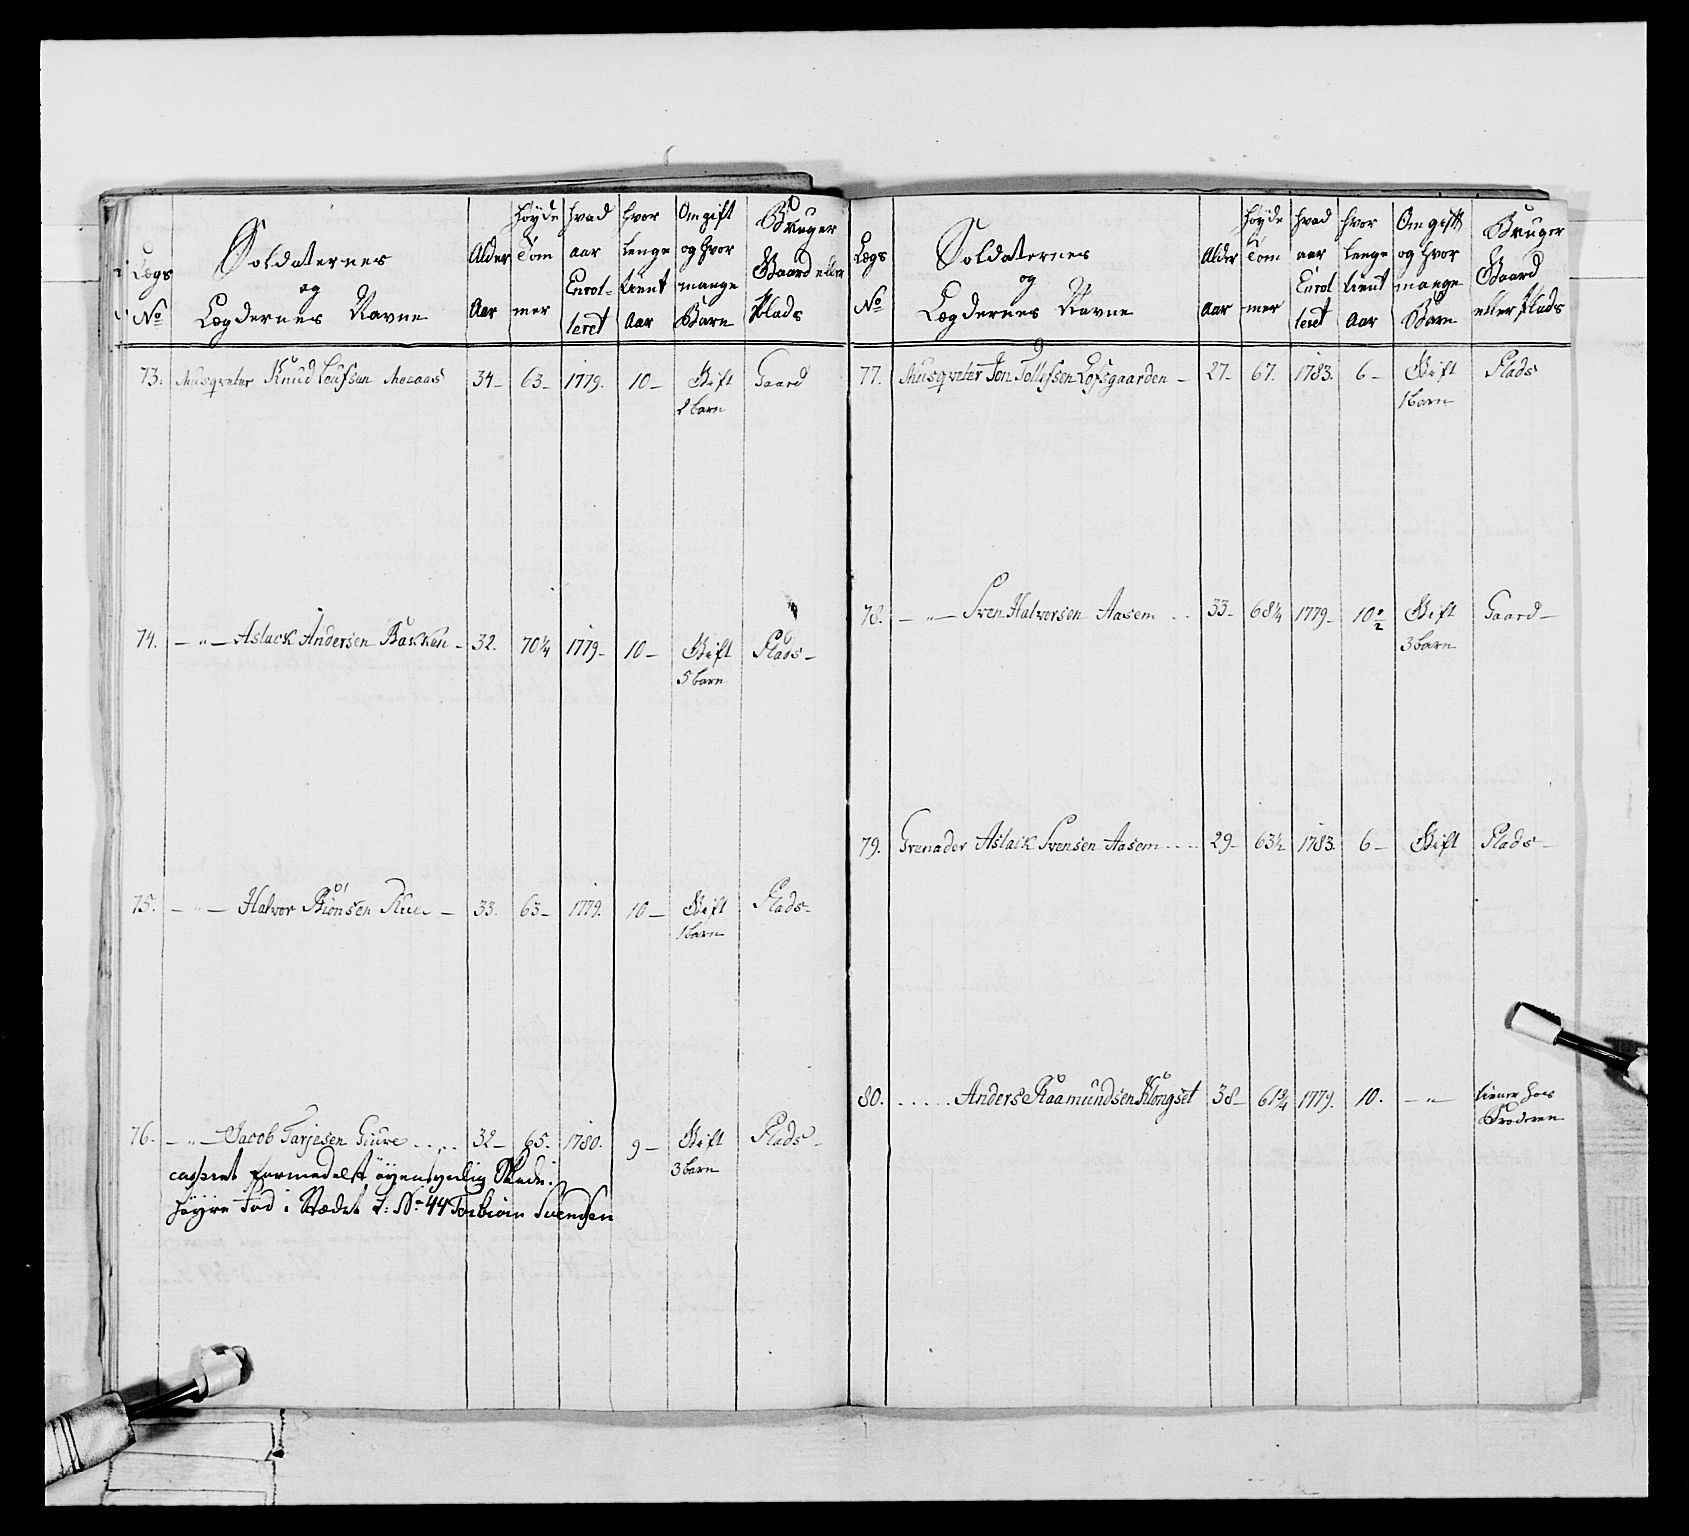 Lægs No
Soldaternes og Lægdernes Navne
Alder Aar
Høyde Tommer
hvad aar Enrolleret
hvor lenge tient Aar
Om gift og hvor mange Børn
Bruger Gaard eller Plads
73. Musqveter Knud 34- 63- 1779. 10- Gift Gaard
2 børn
74. -"- Aslack Andersen Bakken - 32. 70¼ 1779- 10- Gift Plads-
5 børn
75. -"- Halvor Biönsen - 33. 63- 1779. 10- Gift Plads-
1 barn
76. -"- Jacob Tarjesen Giure 32- 65. 1780. 9- Gift Plads-
3 børn
casseret formedelst öyensynlig Skade i
höyre Fod i Stædet L: No 44 Torbiörn Svendsen
Lægs No
Soldaternes og Lægdernes Navne
Alder Aar
Høyde Tommer
hvad aar Enrolleret
hvor lenge tient Aar
Om gift og hvor mange Børn
Bruger Gaard eller Plads
77. Musqveter Jon Tollefsen Lofsgaarden - 27- 67. 1783. 6- Gift Plads
1 barn
78. -"- Sven Halvorsen Aasem 33- 68¼ 1779- 10 Gift Gaard-
3 børn
79. Grenader Aslack Svensen Aasem 29- 63½ 1783. 6- Gift Plads-
80. Anders Raamundsen Klongset 38- 61¾ 1779. 10. -"- tiener hos
Broderen